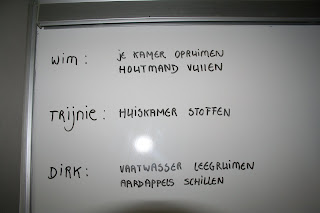 Wim: je KAMER OPRUIMEN
HOUTMAND VULLEN
TRIJNIE: HUISKAMER STOFFEN
DIRK: VAATWASSER LEEGRUIMEN
AARDAPPELS SCHILLEN